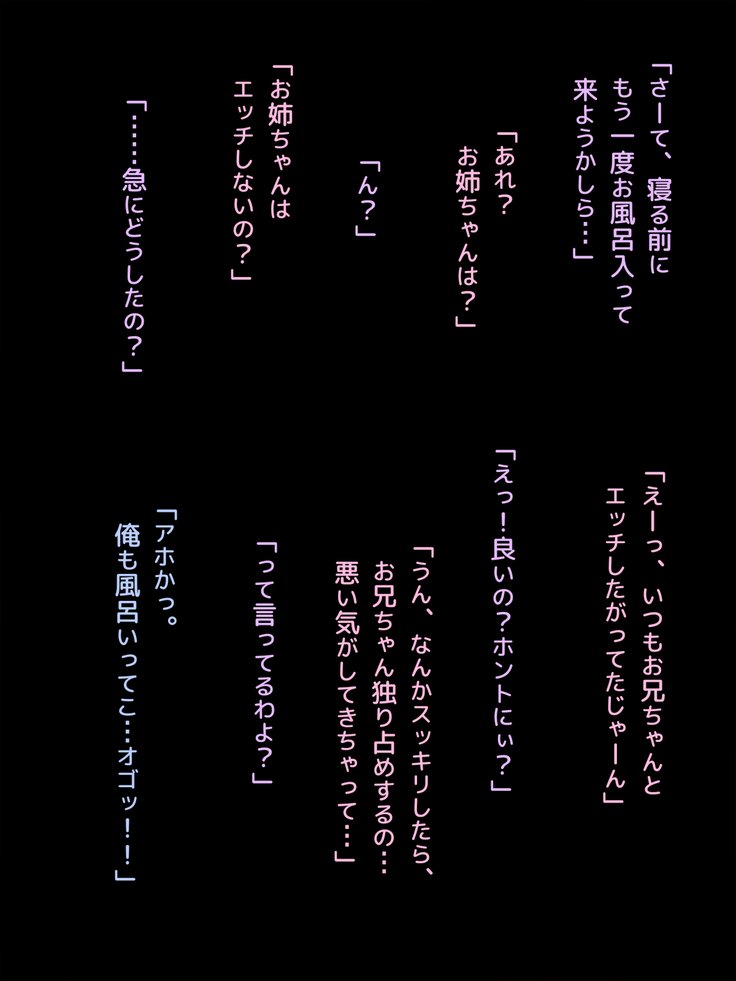 「さーて、寝る前に
もう一度お風呂入って
来ようかしら…」
「あれ？
お姉ちゃんは？」
「ん？」
「お姉ちゃんは
エッチしないの？」
「……急にどうしたの？」
「えーっ、いつもお兄ちゃんと
エッチしたがってたじゃーん」
「えっ！良いの？ホントにぃ？」
「うん、なんかスッキリしたら、
お兄ちゃん独り占めするの…
悪い気がしてきちゃって…」
「って言ってるわよ？」
「アホかっ。
俺も風呂いってこ…オゴッ！！」